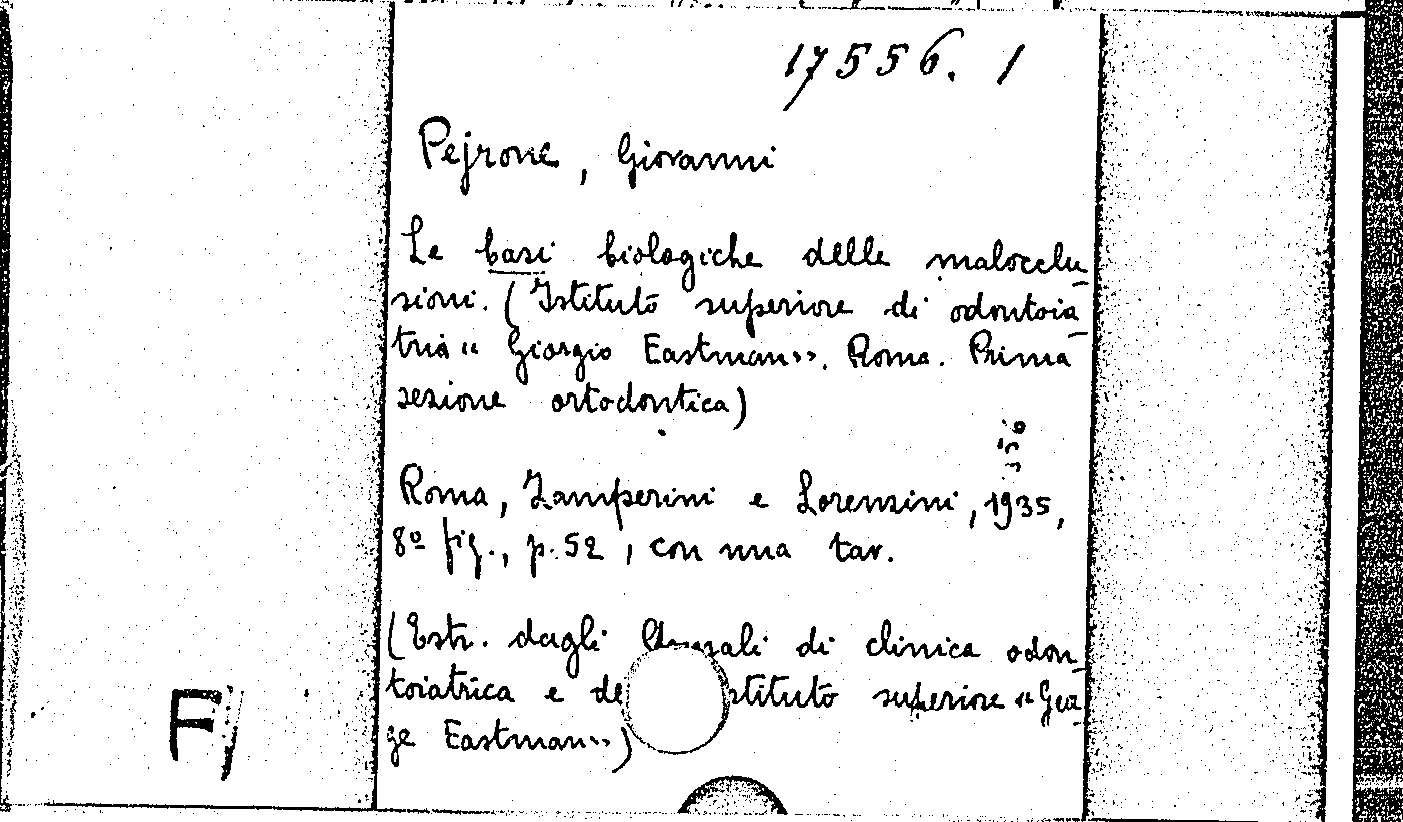 17556. 1
Pejrone, Giovanni
Le basi biologiche delle malocclu-
sioni. (Istituto superiore di odontoia-
tria « Giorgio Eastman». Roma. Prima
sezione ortodontica)
Roma, Zamperini e Lorenzini, 1935,
8º fig., p. 52, con una tav.
(Estr. dagli Annali di clinica odon-
toiatrica e de stituto superiore « Geor-
ge Eastman»)
F